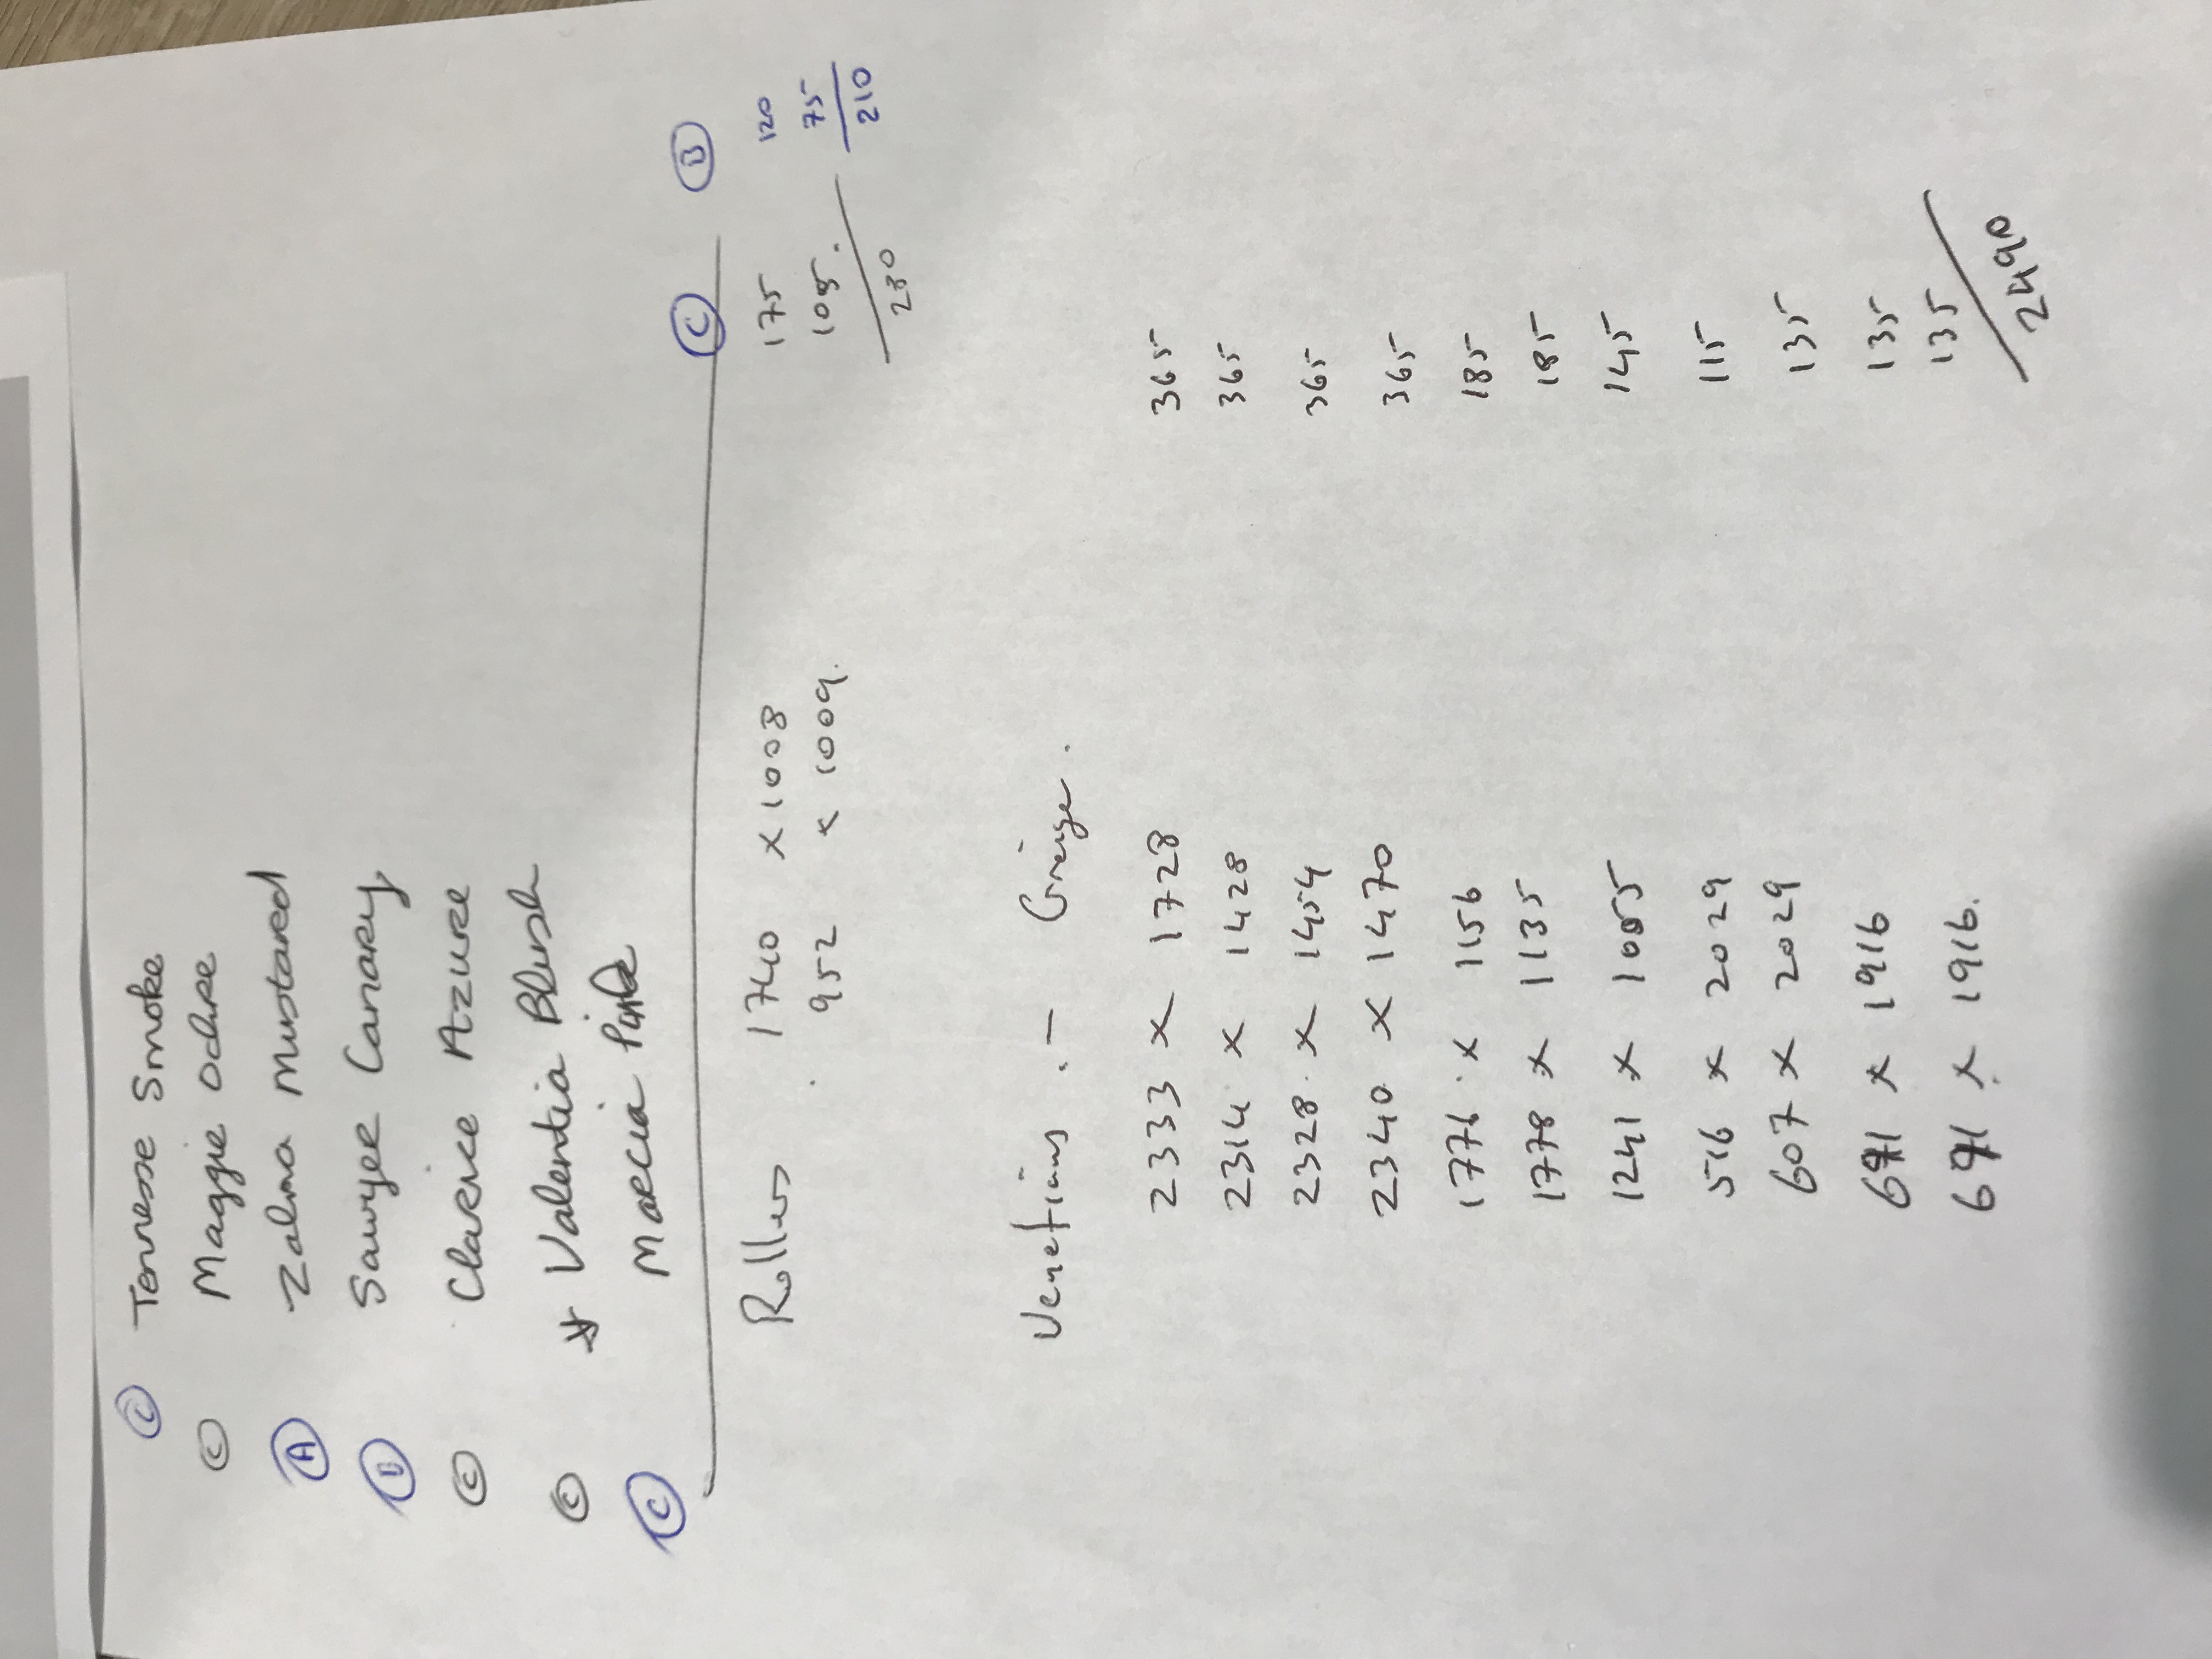 Ⓒ Tennesse Smoke
Ⓒ Maggie Ochre
Ⓐ Zalma Mustared
Ⓑ Sawyer Canary
Ⓒ Clarice Azure
Ⓒ * Valentia Blush
Ⓒ Marcia Pink
Ⓒ Ⓑ
Rollers 1740 x 1008 175 120
952 x 1009. 105. 75
280 210
Venetians :- Greige.
2333 x 1728 365
2314 x 1428 365
2328 x 1454 365
2340 x 1470 365
1776 x 1156 185
1778 x 1135 185
1241 x 1085 145
516 x 2029 115
607 x 2029 135
671 x 1916 135
671 x 1916. 135
2490